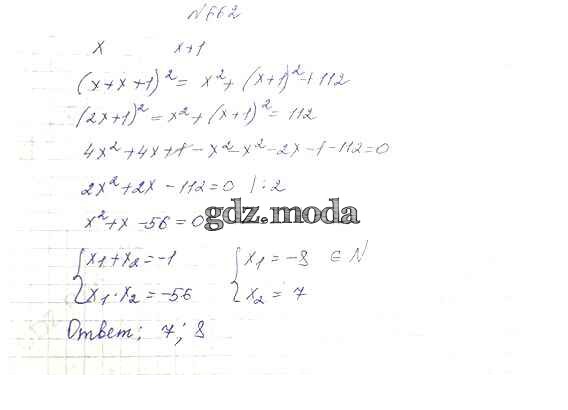 N 662
x x+1
(x+x+1)² = x²+(x+1)²+112
(2x+1)² = x²+(x+1)² = 112
4x²+4x+1-x²-x²-2x-1-112=0
2x²+2x-112=0 | :2
x²+x-56=0
gdz.moda
{ x₁+x₂=-1 { x₁ = -8 ∈ N
{ x₁·x₂=-56 { x₂ = 7
Ответ: 7; 8